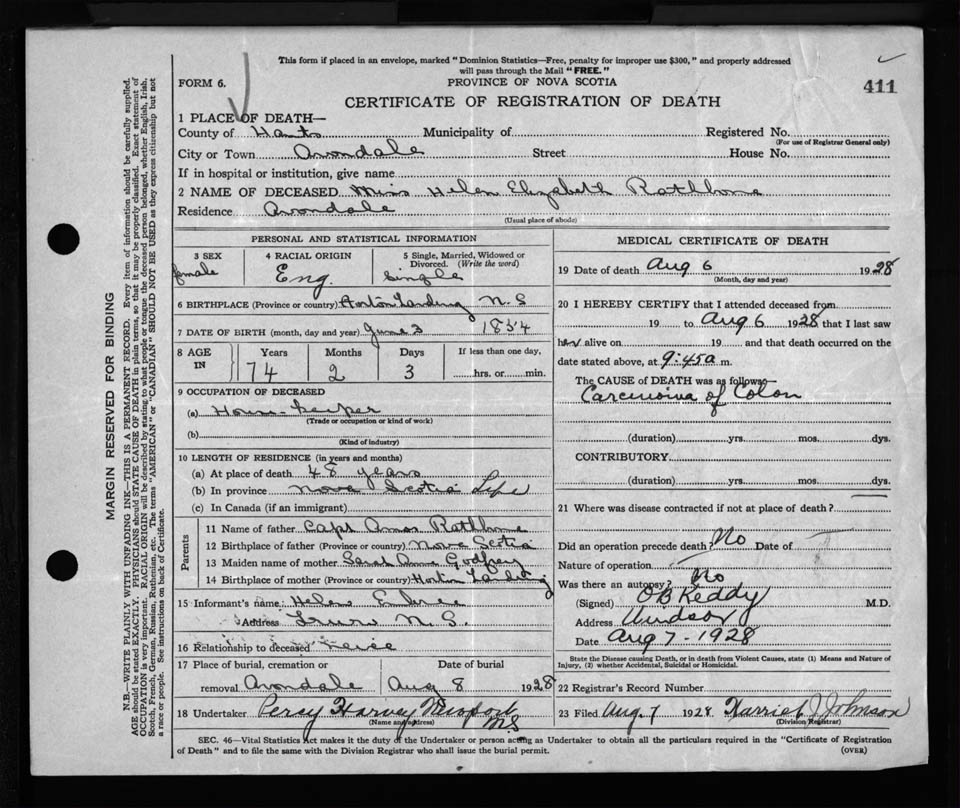 This form if placed in an envelope, marked "Dominion Statistics—Free, penalty for improper use $300," and properly addressed
will pass through the Mail "FREE."
FORM 6.
PROVINCE OF NOVA SCOTIA
411
CERTIFICATE OF REGISTRATION OF DEATH
1 PLACE OF DEATH—
County of Hants Municipality of Registered No.
(For use of Registrar General only)
City or Town Avondale Street House No.
If in hospital or institution, give name
2 NAME OF DECEASED Miss Helen Elizabeth Rathbone
Residence Avondale
(Usual place of abode)
PERSONAL AND STATISTICAL INFORMATION
3 SEX
female
4 RACIAL ORIGIN
Eng.
5 Single, Married, Widowed or
Divorced. (Write the word)
Single
6 BIRTHPLACE (Province or country) Horton Landing N. S
7 DATE OF BIRTH (month, day and year) June 3 1854
8 AGE
IN
Years Months Days If less than one day,
74 2 3 hrs. or min.
9 OCCUPATION OF DECEASED
(a) House keeper
(Trade or occupation or kind of work)
(b)
(Kind of industry)
10 LENGTH OF RESIDENCE (in years and months)
(a) At place of death 48 years
(b) In province Nova Scotia Life
(c) In Canada (if an immigrant)
Parents
11 Name of father Capt Amos Rathbone
12 Birthplace of father (Province or country) Nova Scotia
13 Maiden name of mother Sarah Anna Godfrey
14 Birthplace of mother (Province or country) Horton Landing
15 Informant's name Helen Embree
Address Truro N. S.
16 Relationship to deceased Neice
17 Place of burial, cremation or Date of burial
removal Avondale Aug 8 1928
18 Undertaker Percy Harvey Newport
N.S
(Name and address)
MEDICAL CERTIFICATE OF DEATH
19 Date of death Aug 6 1928
(Month, day and year)
20 I HEREBY CERTIFY that I attended deceased from
19 to Aug 6 1928 that I last saw
her alive on 19 and that death occurred on the
date stated above, at 9:45 a m.
The CAUSE of DEATH was as follows—
Carcinoma of Colon
(duration) yrs. mos. dys.
CONTRIBUTORY
(duration) yrs. mos. dys.
21 Where was disease contracted if not at place of death?
Did an operation precede death? No Date of
Nature of operation
Was there an autopsy? No
(Signed) O B Keddy M.D.
Address Windsor
Date Aug 7 - 1928
State the Disease causing Death, or in death from Violent Causes, state (1) Means and Nature of
Injury, (2) whether Accidental, Suicidal or Homicidal.
22 Registrar's Record Number
23 Filed Aug. 7 1928 Harriet J Johnson
(Division Registrar)
SEC. 46—Vital Statistics Act makes it the duty of the Undertaker or person acting as Undertaker to obtain all the particulars required in the "Certificate of Registration
of Death" and to file the same with the Division Registrar who shall issue the burial permit.
(OVER)
MARGIN RESERVED FOR BINDING
N.B.—WRITE PLAINLY WITH UNFADING INK—THIS IS A PERMANENT RECORD. Every item of information should be carefully supplied.
AGE should be stated EXACTLY. PHYSICIANS should STATE CAUSE OF DEATH in plain terms, so that it may be properly classified. Exact statement of
OCCUPATION is very important. RACIAL ORIGIN will be described by stating what people or tongue the deceased person belonged, whether English, Irish,
Scotch, French, German, Russian, Ruthenian, etc. The terms "AMERICAN" or "CANADIAN" SHOULD NOT BE USED as they express citizenship but not
a race or people. See instructions on back of Certificate.